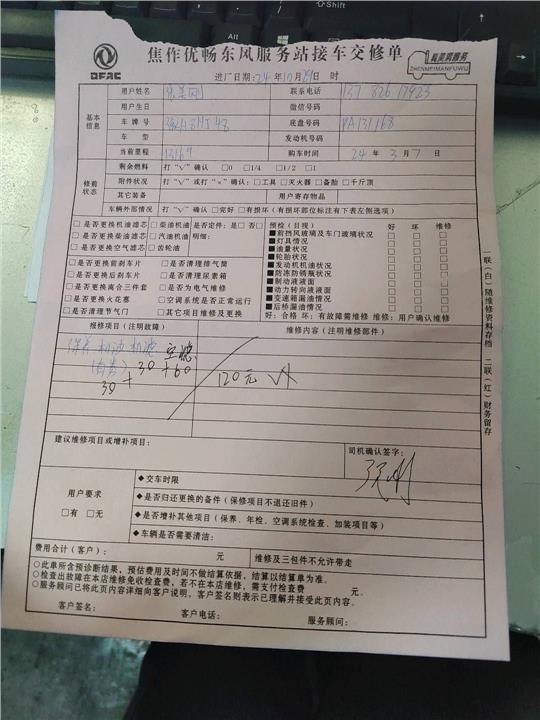 Shift
Alt
DFAC
焦作优畅东风服务站接车交修单
臻美馿服务
ZHENMEIWANFUWU
进厂日期:24年10月29日 时
基本信息
用户姓名
联系电话 137 826 17923
用户生日
微信号码
车牌号
底盘号码 PA131168
车型
发动机号码
当前里程 13167
购车时间 24年3月7日
修前状态
剩余燃料 打"√"确认 □0 □1/4 □1/2 □1
附件状况 打"√"或打"×"确认:□工具 □灭火器 □备胎 □千斤顶
其它装备
用户寄存物品
车辆外部情况 打"√"确认 □完好 □有损坏(有损坏部位标注有下表左侧选项)
□是否更换机油滤芯 □柴油机油 是否定件:是□否□
□是否更换柴油滤芯 □汽油机油 明细:
□是否更换空气滤芯 □齿轮油
□是否更换前刹车片 □是否清理排气筒
□是否更换后刹车片 □是否清理尿素箱
□是否更换离合三件套 □是否为电气维修
□是否更换火花塞 □空调系统是否正常运行
□是否清理节气门 □其它项目维修及更换
预检(目视) 好 坏 维修
■前挡风玻璃及车门玻璃状况 □ □ □
■灯具情况 □ □ □
■油量状况 □ □ □
■轮胎状况 □ □ □
■发动机机油状况 □ □ □
■防冻防锈瓶状况 □ □ □
■制动液液面 □ □ □
■动力转向液液面 □ □ □
■变速箱漏油情况 □ □ □
■后桥漏油情况 □ □ □
好:合格 坏:有故障需维修 维修:用户确认维修
报修项目(注明故障)
维修内容(注明维修部件)
保养 机油 机滤 空滤
30+30+60
120元
建议维修项目或增补项目:
司机确认签字:
用户要求
□有 □无
◆交车时限
◆是否归还更换的备件(保修项目不退还旧件)
◆是否增补其他项目(保养、年检、空调系统检查、加装项目等)
◆车辆是否需要清洁:
费用合计(客户): 元
维修及三包件不允许带走
○此单所含预诊断结果,预估费用及时间不做结算依据,结算以结算单为准。
○检查出故障在本店维修免收检查费,若不在本店维修,需支付检查费 元。
○服务顾问已将此页内容详细向客户说明,客户签名则表示已理解并接受此页内容。
客户签名: 客户电话: 服务顾问:
一联(白)随维修资料存档 二联(红)财务留存